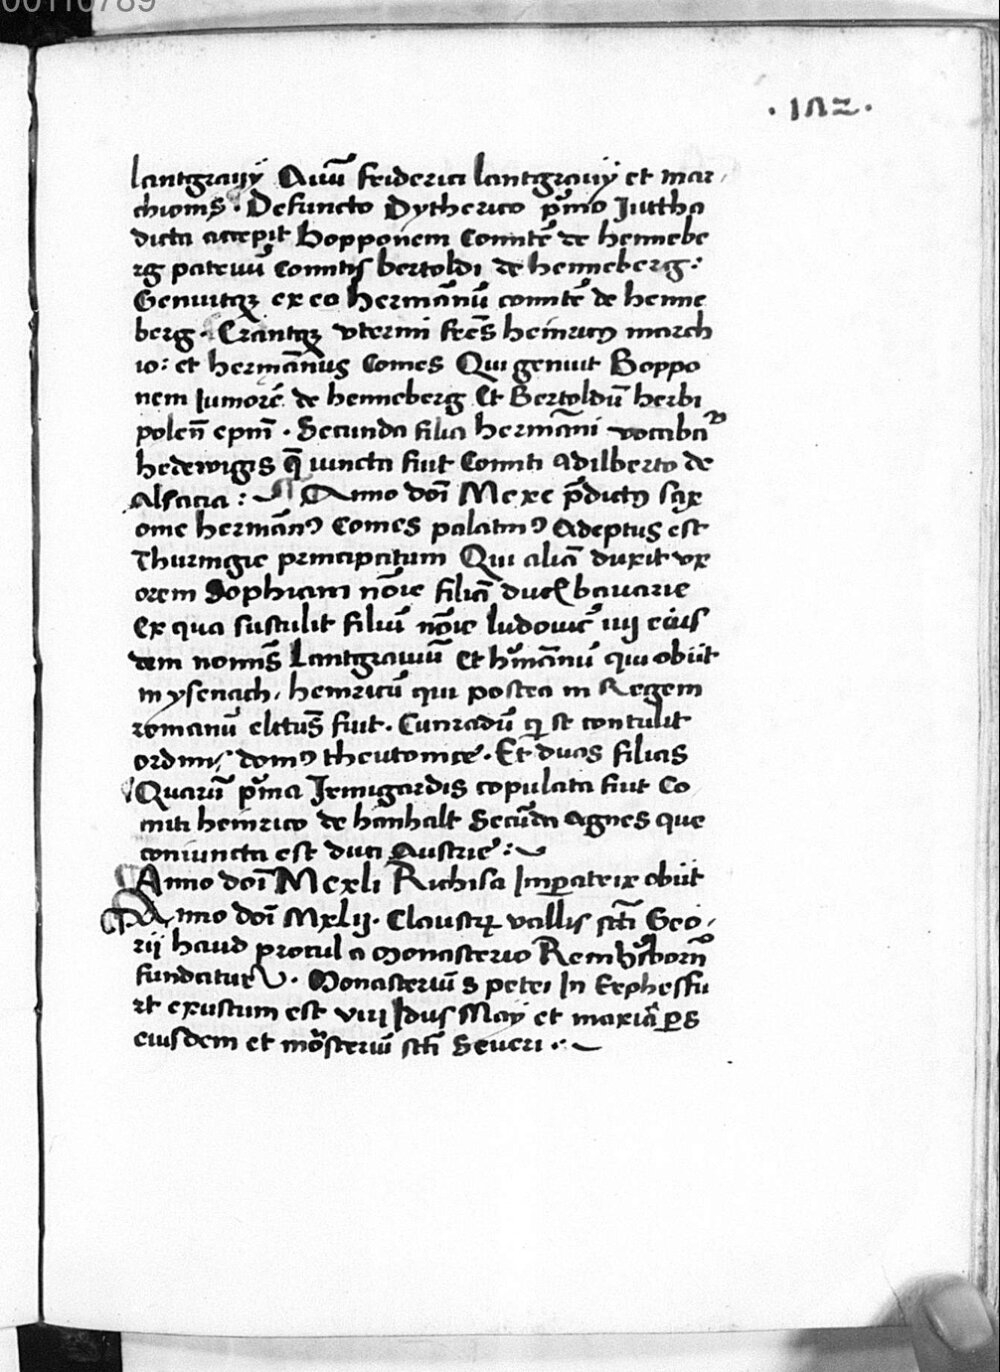 00116789
·182·
lantgravij Auū friderici lantgravij et mar
chionis̄ · Defuncto Dytherico p̄mo Juttha
dicta accepit Bopponem Comitē de hennebe
rg patruū Comitis bertoldi de henneberg:
Genuitqȝ ex eo hermānū comitē de henne
berg · Erantqȝ uterini fr̄es heinricꝯ march
io: et hermānus Comes Qui genuit Boppo
nem Juniorē de henneberg Et Bertoldū herbi
polen̄ ep̄m · Secunda filia hermāni vocabaʳ
hedewigis q̄ iuncta fuit Comiti adilberto de
Alsacia: ¶ Anno doī Mcxc p̄dictꝯ sax
onie hermānꝯ Comes palatinꝯ Adeptus est
Thuringie principatum Qui aliā duxit vx
orem Sophiam nōie filiā duc bauarie
Ex qua sustulit filiū nōie ludovic̄ iiij eius
dem nominis̄ Lantgraviū Et hʼmānū qui obiit
in ysenach, heinricū qui postea in Regem
romanū elctus̄ fuit. Cunradū q̄ se contulit
ordini domꝯ theutonice. Et duas filias
Quarū p̄ma Jrmigardis copulata fuit Co
miti heinrico de hanhalt Secūda Agnes que
coniuncta est duci Austrie:
Anno doī Mcxli Richisa Imꝑatrix obiit
¶ Anno doī Mxlij. Claustrꝝ vallis sc̄ti Geo
rij haud procul a Monasterio Reinhʼsborn̄
fundatur. Monasteriū s petri In Erphesfu
rt exustum est viij Idus Maij et maxiā ꝑs
eiusdem et mōsteriū sc̄ti Severi.